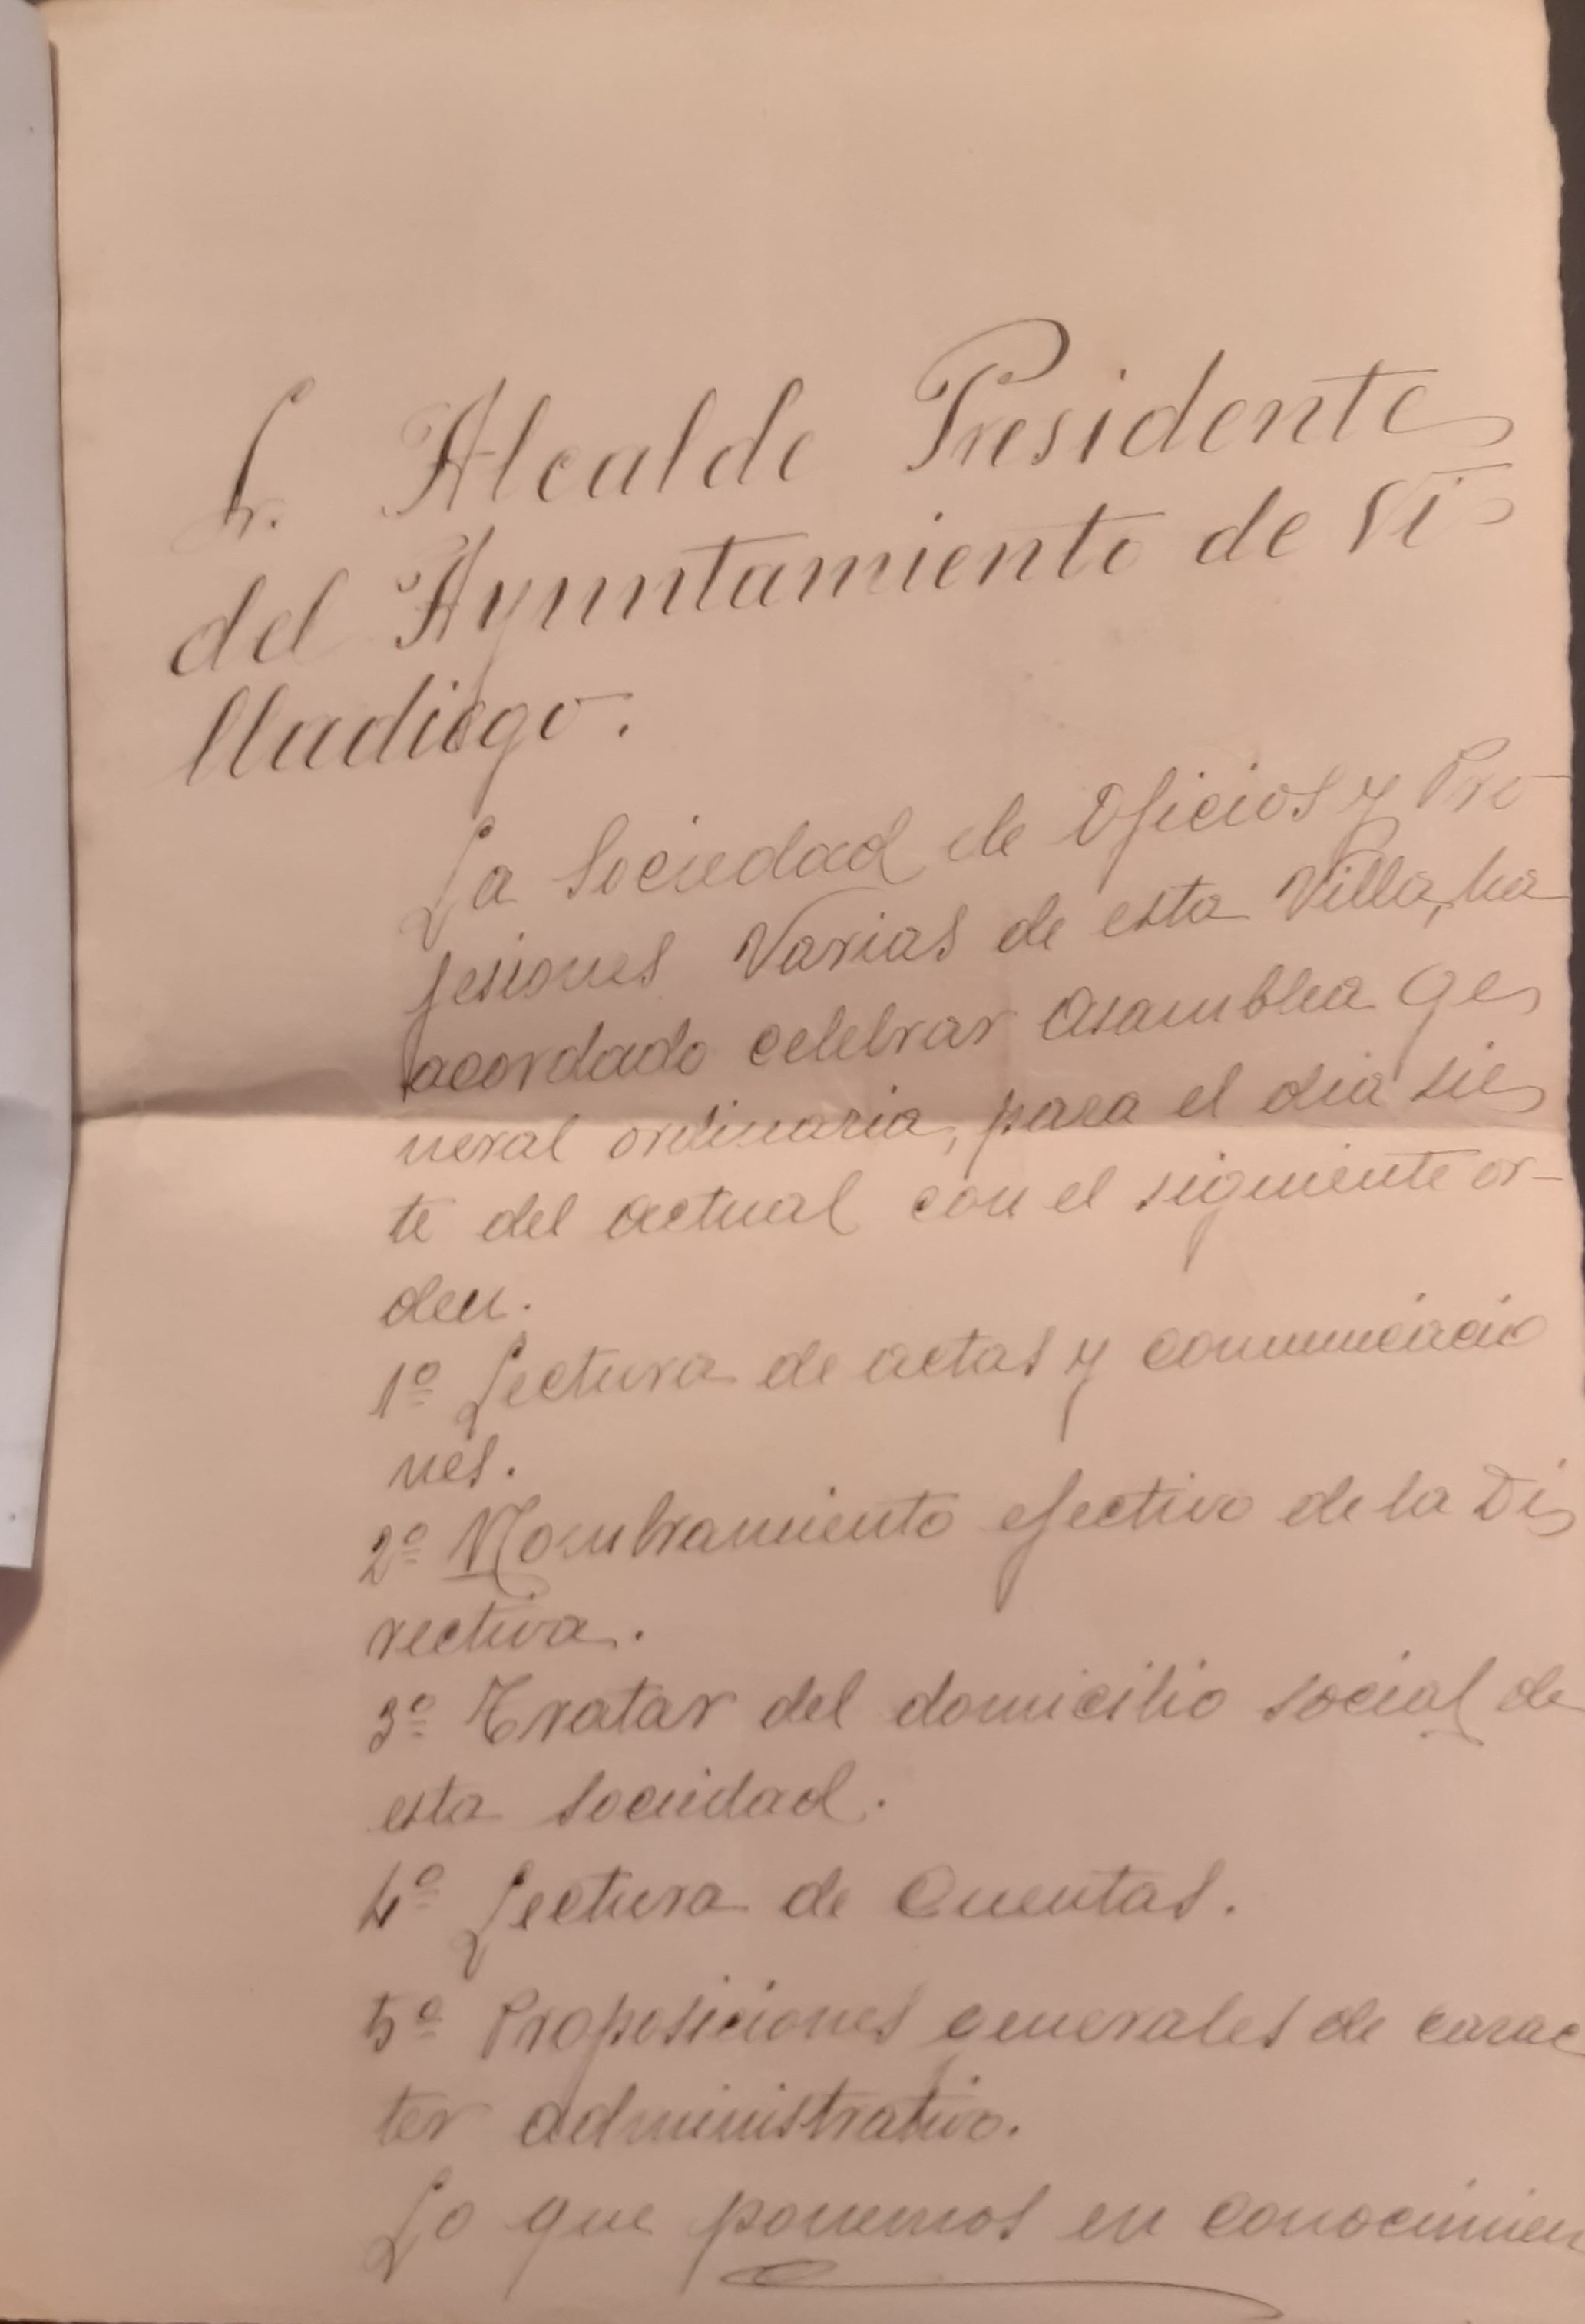 Sr. Alcalde Presidente
del Ayuntamiento de Vi-
lladiego.
La Sociedad de Oficios y Pro-
fesiones Varias de esta Villa, ha
acordado celebrar Asamblea Ge-
neral ordinaria, para el dia sie-
te del actual con el siguiente or-
den.
1º Lectura de actas y comunicacio
nes.
2º Nombramiento efectivo de la Di-
rectiva.
3º Tratar del domicilio social de
esta sociedad.
4º Lectura de Cuentas.
5º Proposiciones generales de carac
ter administrativo.
Lo que ponemos en conocimien